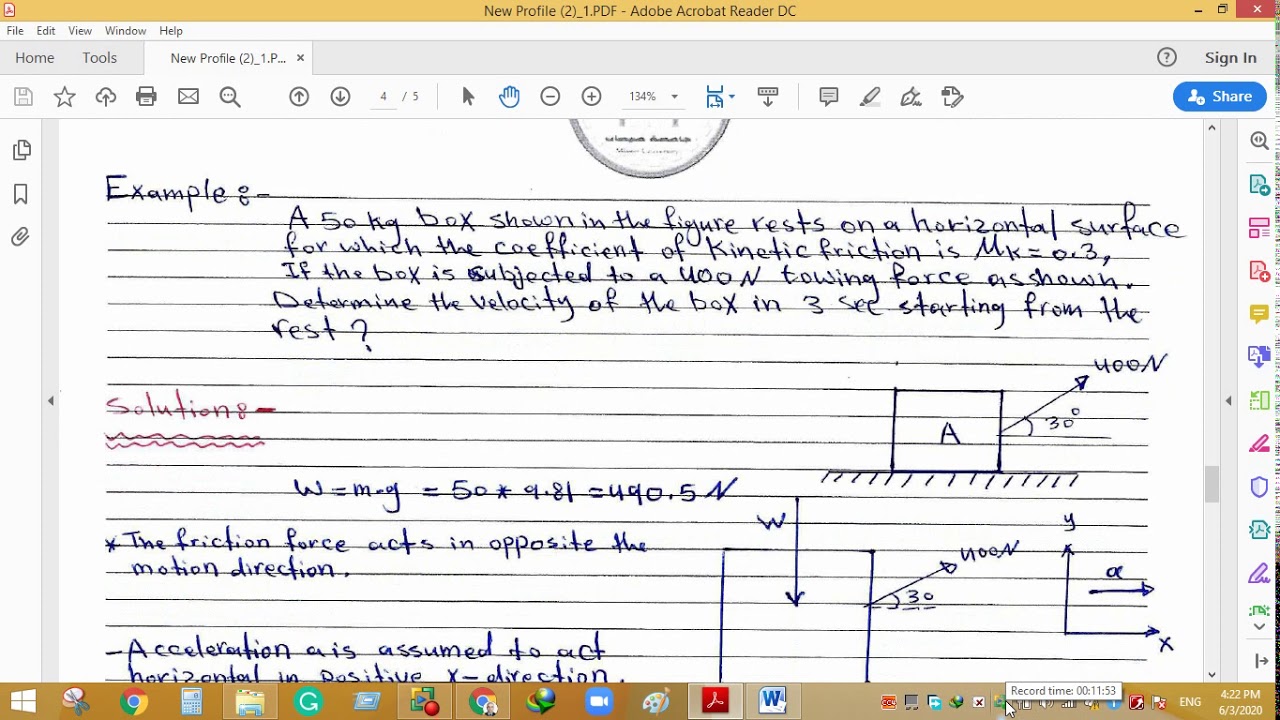 New Profile (2)_1.PDF - Adobe Acrobat Reader DC
File Edit View Window Help
Home Tools New Profile (2)_1.P... × Sign In
4 / 5 134% Share
Example:-
A 50 kg box shown in the figure rests on a horizontal surface
for which the coefficient of Kinetic friction is Mk=0.3,
If the box is subjected to a 400N towing force as shown.
Determine the velocity of the box in 3 sec starting from the
rest?
400N
Solution:-
30°
A
W = m.g = 50 * 9.81 = 490.5 N
W
y
* The friction force acts in opposite the
motion direction.
400N
a
30
x
- Acceleration a is assumed to act
horizontal in positive x-direction.
Record time: 00:11:53
ENG
4:22 PM
6/3/2020